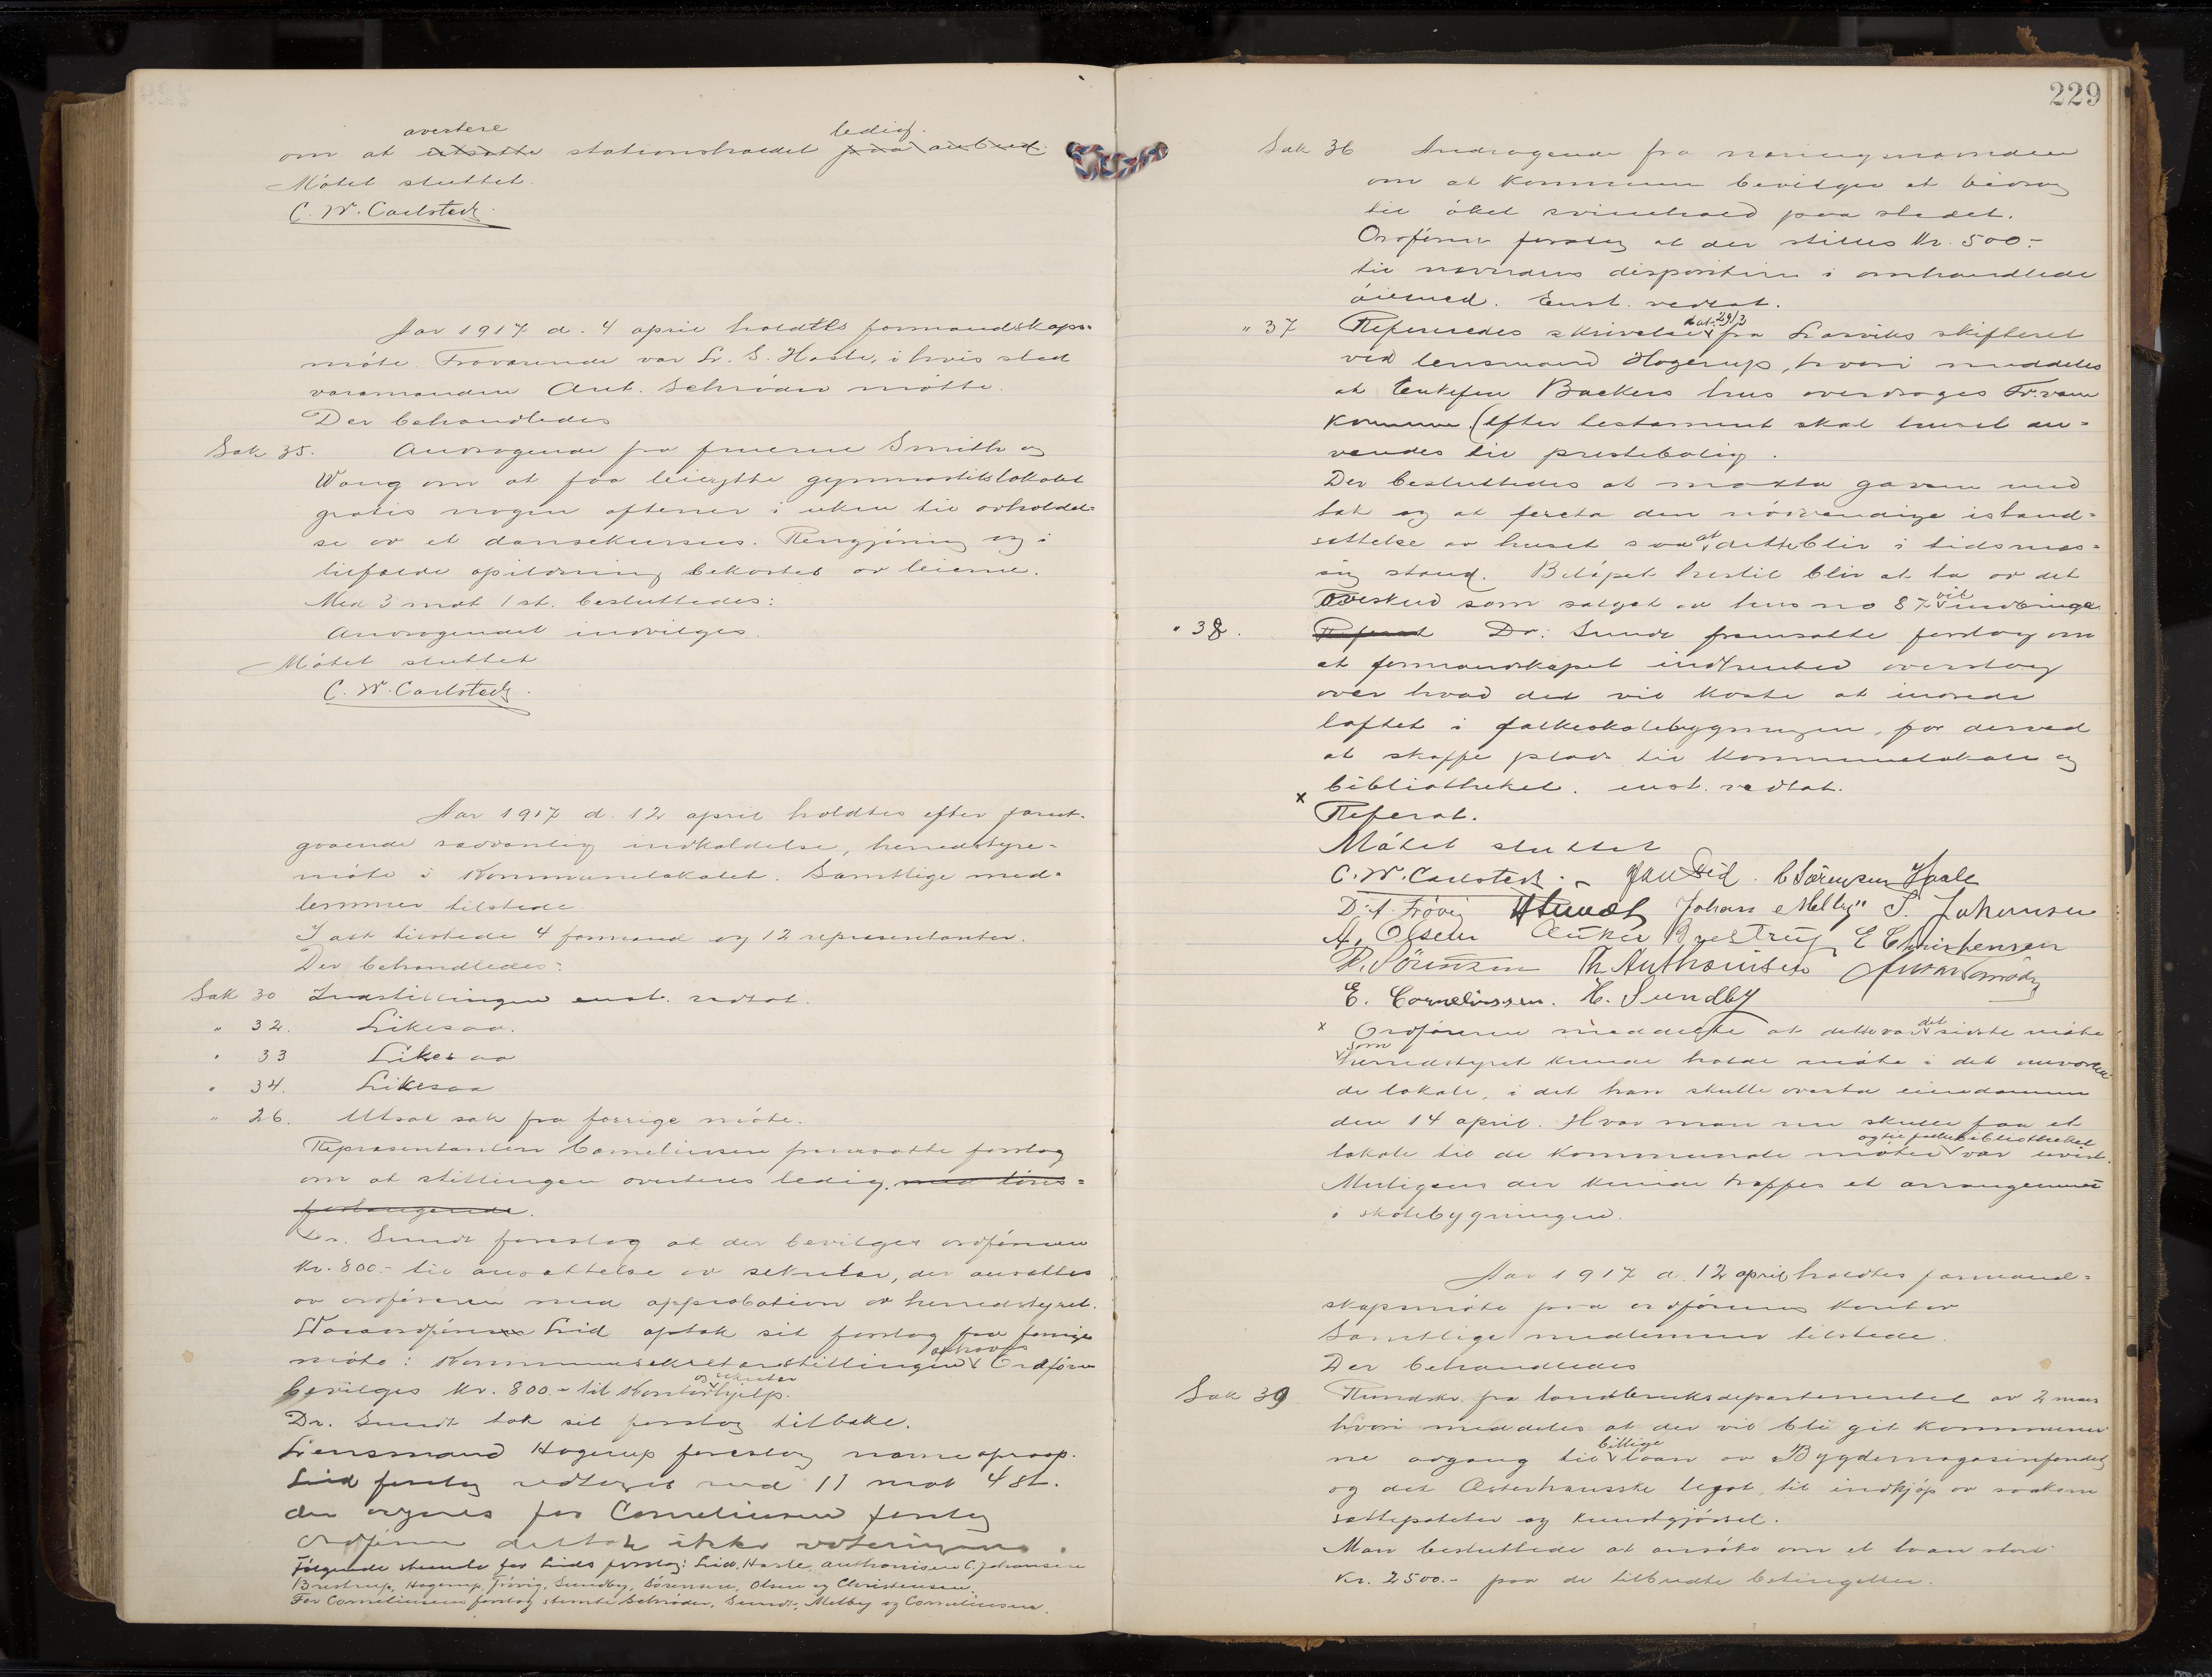 avertere ledig.
om at utsætte stationsholdet paa anbud.
Møtet sluttet.
C. W. Carlstedt.
Aar 1917 d. 4 april holdtes formandskaps-
møte. Fraværende var Lr. S. Hasle, i hvis sted
varamanden Ant. Schrøder møtte.
Der behandledes
Sak 35. Andragende fra fruerne Smith og
Wang om at faa benytte gymnastiklokalet
gratis nogen aftener i uken til avholdel-
se av et dansekursus. Rengjøring og i
tilfælde opildning bekostes av leierne.
Med 3 mot 1 st. besluttedes:
Andragendet indvilges.
Møtet sluttet
C. W. Carlstedt.
Aar 1917 d. 12 april holdtes efter forut-
gaaende sedvanlig indkaldelse, herredstyre-
møte i Kommunelokalet. Samtlige med-
lemmer tilstede
I alt tilstede 4 formænd og 12 repræsentanter.
Der behandledes:
Sak 30 Indstillingen enst. vedtat.
" 32. Likesaa.
" 33 Likesaa
" 34. Likesaa
" 26. Utsat sak fra forrige møte.
Repræsentanten Corneliussen fremsatte forslag
om at stillingen averteres ledig. med løns-
forlangende.
Dr. Sundt foreslog at der bevilges ordføreren
Kr. 800.- til ansættelse av sekretær, der ansættes
av ordføreren med approbation av herredstyret.
Varaordfører Lid optok sit forslag fra forrige
møte: Kommunesekretærstillingen ophæves Ordføreren
bevilges kr. 800.- til kontor og sekretær hjelp.
Dr. Sundt tok sit forslag tilbake.
Lensmand Hagerup foreslog navneoprop.
Lid forslag vedtoges med 11 mot 4 st.
der avgaves for Corneliussens forslag
Ordføreren deltok ikke i voteringen.
Følgende stemte for Lids forslag: Lid, Hasle, Anthonisen C. Johansen
Brestrup, Hagerup, Frøvig, Sundby, Sørensen, Olsen og Christensen.
For Corneliussens forslag stemte Schrøder, Sundt, Melby og Corneliussen.
229
Sak 36 Andragende fra næringsnævnden
om at Kommunen bevilger et bidrag
til øket svinehold paa stedet.
Ordføreren foreslog at der stilles Kr. 500.-
til nævndens disposition i omhandlede
øiemed. Enst. vedtat.
" 37 Refereredes skrivelse dat. 29/3 fra Larviks skifteret
ved lensmand Hagerup, hvori meddeles
at Enkefru Backers hus overdrages Fr.værn
Kommune (efter testament skal huset an-
vendes til prestebolig.
Der besluttedes at motta gaven med
tak og at foreta den nødvendige istand-
sættelse av huset saa at dette blir i tidsmæs-
sig stand. Beløpet hertil blir at ta av det
Overskud som salget av hus no 87 vil indbringe
" 38. Referat Dr. Sundt fremsatte forslag om
at formandskapet indhenter overslag
over hvad det vil koste at indrede
loftet i folkeskolebygningen, for derved
at skaffe plads til Kommunelokale og
bibliotheket. enst. vedtat.
x
Referat.
Møtet sluttet
C. W. Carlstedt. Lid. C Sørensen Hasle
D. A. Frøvig H Sundt Johan Melby S. Johansen
A. Olsen Anker Brestrup E Christensen
P. Sørensen Th. Anthonisen
E. Corneliussen. H. Sundby
x Ordføreren meddelte at dette var det sidste møte
som herredstyret kunde holde møte i det nuværen-
de lokale, i det han skulle overta eiendommen
den 14 april. Hvor man nu skulle faa et
lokale til de kommunale møter og til folkebibliotheket var uvist.
Muligens der kunde træffes et arrangement
i skolebygningen.
Aar 1917 d. 12 april holdtes formand-
skapsmøte paa ordførerens kontor
Samtlige medlemmer tilstede.
Der behandledes
Sak 39 Rundskr. fra landbruksdepartementet av 2 mars
hvori meddeles at der vil bli git kommuner
ne adgang til billige laan av Bygdemagasinfondet
og det Østerhausske legat, til indkjøp av saakorn
sættepoteter og kunstgjødsel.
Man besluttede at ansøke om et laan stort
Kr. 2500.- paa de tilbudte betingelser.